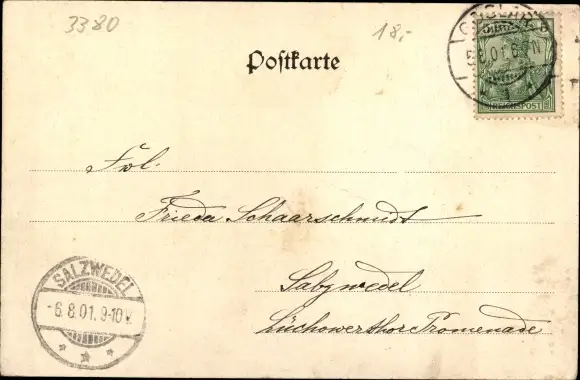 3380
18,-
GOSLAR
5.8.01.6-7N
REICHSPOST
Postkarte
Frl.
Frieda Schaarschmidt
Salzwedel
Lüchowerthor Promenade
SALZWEDEL
-6.8.01.9-10V.